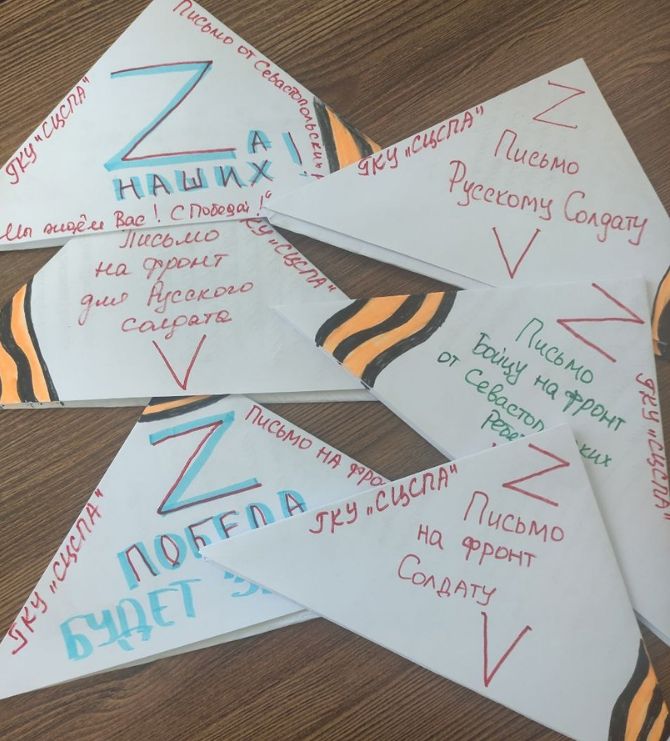 Письмо от Севастопольских
ГКУ "СЦСПА"
Z А !
НАШИХ
Мы ждём Вас! С Победой!"
ГКУ "СЦСПА"
Z
Письмо
Русскому Солдату
V
ГКУ "СЦСПА"
Письмо
на фронт
для Русского
солдата
V
Z
Письмо
Бойцу на фронт
от Севастопольских
ГКУ "СЦСПА"
Письмо на фро
ГКУ "СЦСПА"
Z
ПОБЕДА
БУДЕТ
ГКУ "СЦСПА"
Z
Письмо
на фронт
Солдату
V